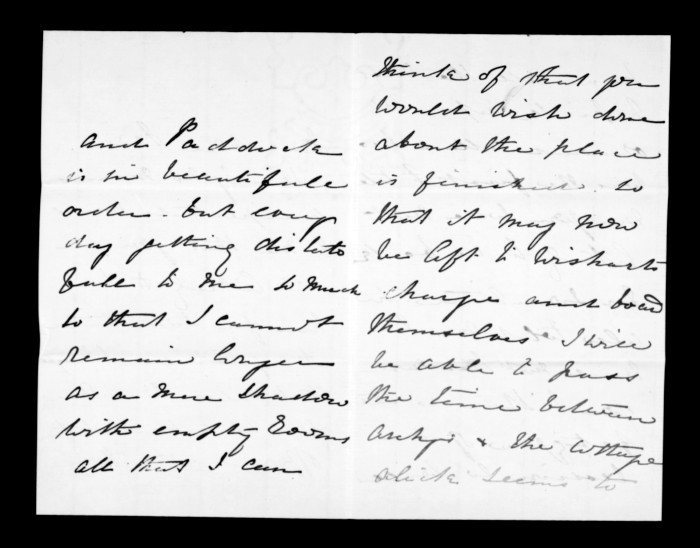 and Paddock
is in beautifull
order. but every
day getting distate
full to me so much
so that I cannot
remain longer
as a mere shadow
with empty Rooms
all that I can
think of that you
would wish done
about the place
is finished. so
that it may now
be left to Wisharts
charge and board
themselves I will
be able to pass
the time between
Archys & the cottage
which seems to